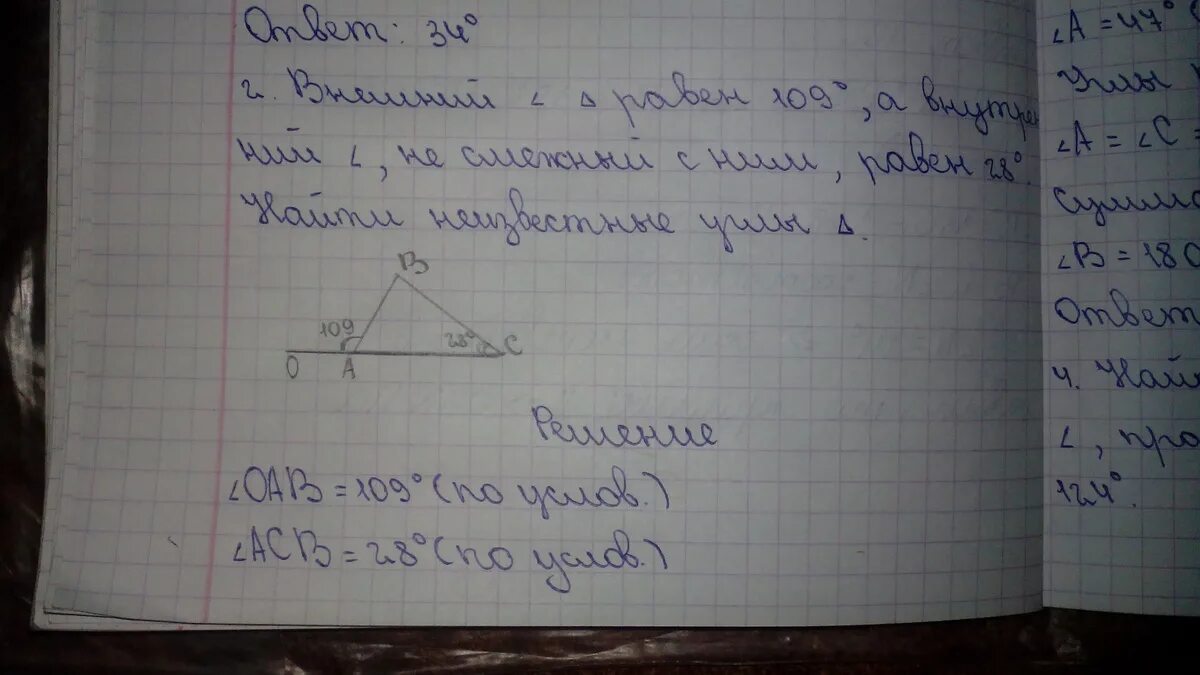 Ответ: 34°
2. Внешний ∠ Δ равен 109°, а внутрен
ний ∠, не смежный с ним, равен 28°.
Найти неизвестные углы Δ.
B
109
28°
O A C
Решение
∠OAB = 109° (по услов.)
∠ACB = 28° (по услов.)
∠A = 47°
Углы
∠A = ∠C =
∠B = 180
Ответ
4.
∠,
124°.